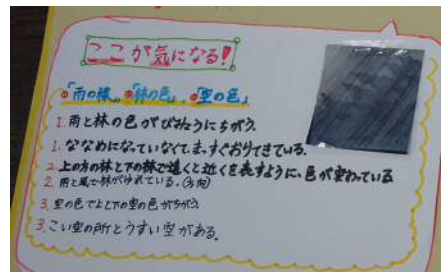 ここが気になる!
●「雨の線」●「林の色」、●「空の色」
1. 雨と林の色がびみょうにちがう。
1. ななめになっていなくて、ま、すぐおりてきている。
2. 上の方の林と下の林で遠くと近くを表すように、色が変わっている
2. 雨と風で林がゆれている。(方向)
3. 空の色で上と下の空の色がちがう。
3. こい空の所とうすい空がある。